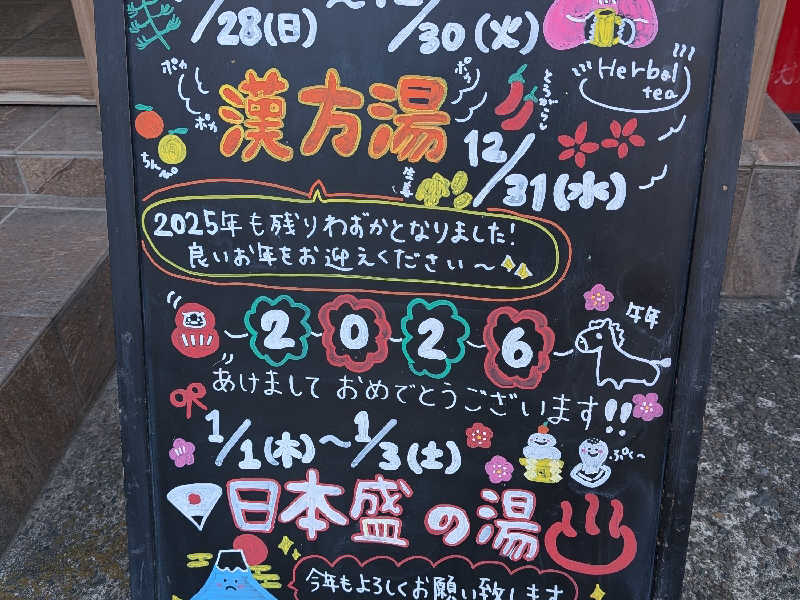 /28(日)〜12/30(火)
Herbal
tea
ポカ
ポカ
ポカ
漢方湯
とうがらし
ちんぴ
生姜
12/31(水)
2025年も残りわずかとなりました!
良いお年をお迎えください〜
2026
午年
あけまして おめでとうございます!!
1/1(木)〜1/3(土)
ぷく〜
日本盛の湯
今年もよろしくお願い致します